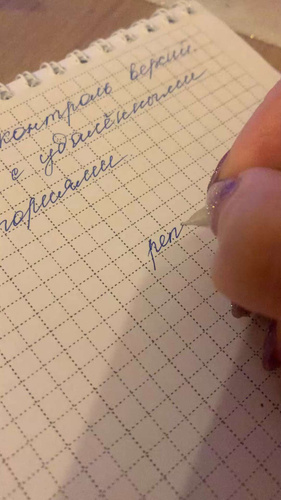 контроль верхий
с удалёнными
гориями
реп